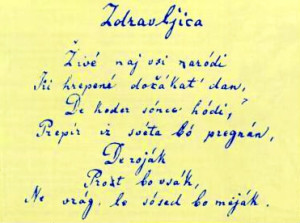 Zdravljica
Živé naj vsi naródi
Ki hrepené dočákat' dan,
De koder sónce hódi,
Prepir iz svéta bó pregnán,
De roják
Prost bo vsák,
Ne vrág, le sósed bo méják.